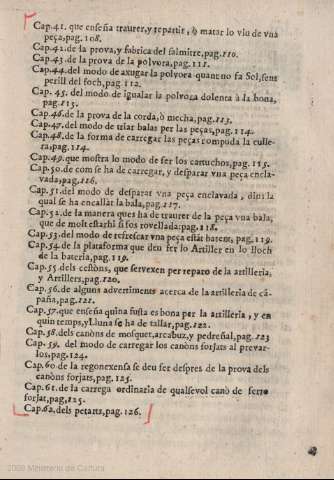 Cap.41. que enseña traurer, y repartir, ò matar lo viu de vna
peça, pag.108.
Cap.42. de la prova, y fabrica del salmitre, pag.110.
Cap.43. de la prova de la polvora, pag.111.
Cap.44. del modo de axugar la polvora quant no fa Sol, sens
perill del foch, pag.112.
Cap.45. del modo de igualar la polvora dolenta à la bona,
pag.113.
Cap.46. de la prova de la corda, ò mecha, pag.113.
Cap.47. del modo de triar balas per las peças, pag.114.
Cap.48. de la forma de carregar las peças rompuda la culle-
ra, pag.114.
Cap.49. que mostra lo modo de fer los cartuchos, pag.115.
Cap.50. de com se ha de carregar, y desparar vna peça encla-
vada, pag.116.
Cap.51. del modo de desparar vna peça enclavada, dins la
qual se ha encallàt la bala, pag.117.
Cap.52. de la manera ques ha de traurer de la peça vna bala,
que de molt estarhi si fos rovellada: pag.118.
Cap.53. del modo de refrescar vna peça estàt batent, pag.119.
Cap.54. de la plataforma que deu fer lo Artiller en lo lloch
de la bateria, pag.119.
Cap.55. dels cestòns, que servexen per reparo de la artilleria,
y Artillers, pag.120.
Cap.56. de alguns advertiments acerca de la artilleria de cā-
paña, pag.121.
Cap.57. que enseña quina fusta es bona per la artilleria, y en
quin temps, y Lluna se ha de tallar, pag.122.
Cap.58. dels canòns de mosquet, arcabuz, y pedreñal, pag.123
Cap.59. del modo de carregar los canòns forjats al prevar-
los, pag.124.
Cap.60 de la regonexensa se deu fer despres de la prova dels
canòns forjats, pag.125.
Cap.61. de la carrega ordinaria de qualsevol canò de ferro
forjat, pag.125.
Cap.62. dels petarts, pag.126.
2009 Ministerio de Cultura